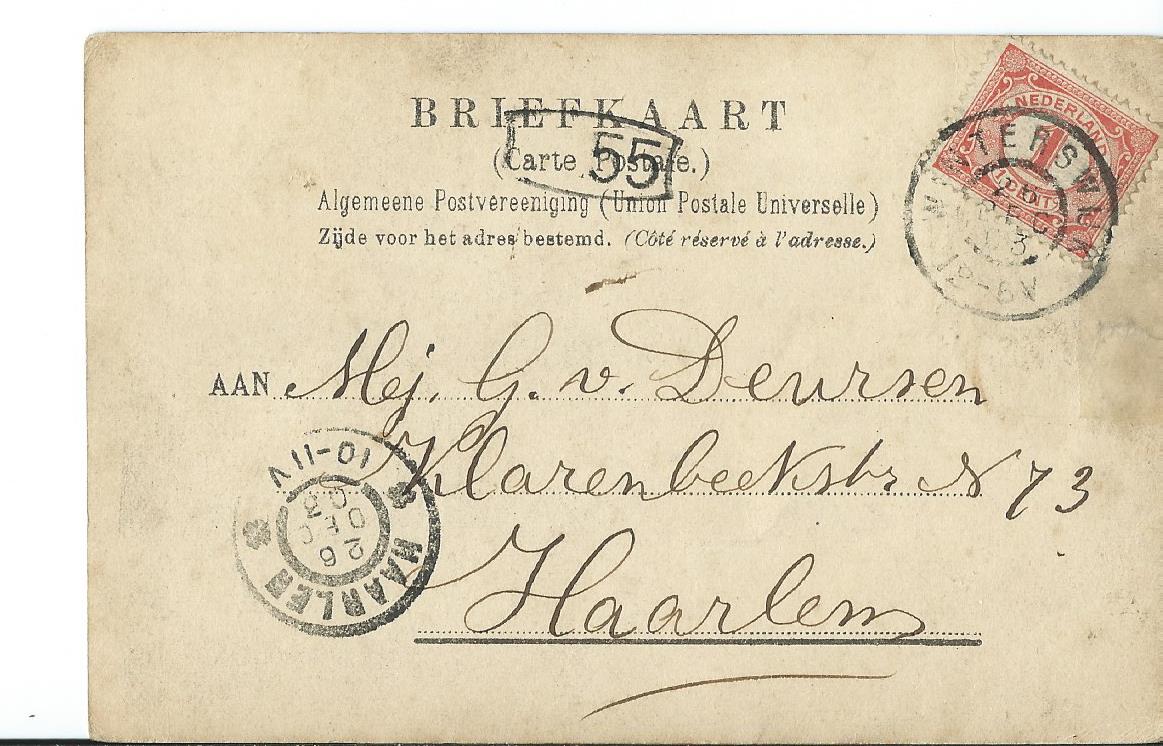 BRIEFKAART
(Carte Postale.)
55
Algemeene Postvereeniging (Union Postale Universelle)
Zijde voor het adres bestemd. (Côté réservé à l'adresse.)
NEDERLAND
1
CENT
WINTERSWYK
DEC
12-8V
AAN Mej. G. v. Deursen
Klarenbeekstr N 73
Haarlem
HAARLEM
26
DEC
03
10-11V